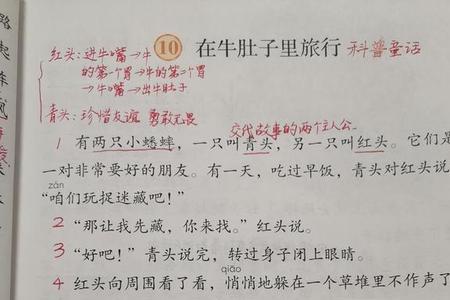 10 在牛肚子里旅行 科普童话
红头:进牛嘴→牛
的第一个胃→牛的第二个胃
→牛嘴→出牛肚子
青头:珍惜友谊 勇敢无畏
交代故事的两个主人公。
1 有两只小蟋蟀,一只叫青头,另一只叫红头。它们是
一对非常要好的朋友。有一天,吃过早饭,青头对红头说
zán
“咱们玩捉迷藏吧!”
2 “那让我先藏,你来找。”红头说。
3 “好吧!”青头说完,转过身子闭上眼睛。
qiāo
4 红头向周围看了看,悄悄地躲在一个草堆里不作声了
路
起